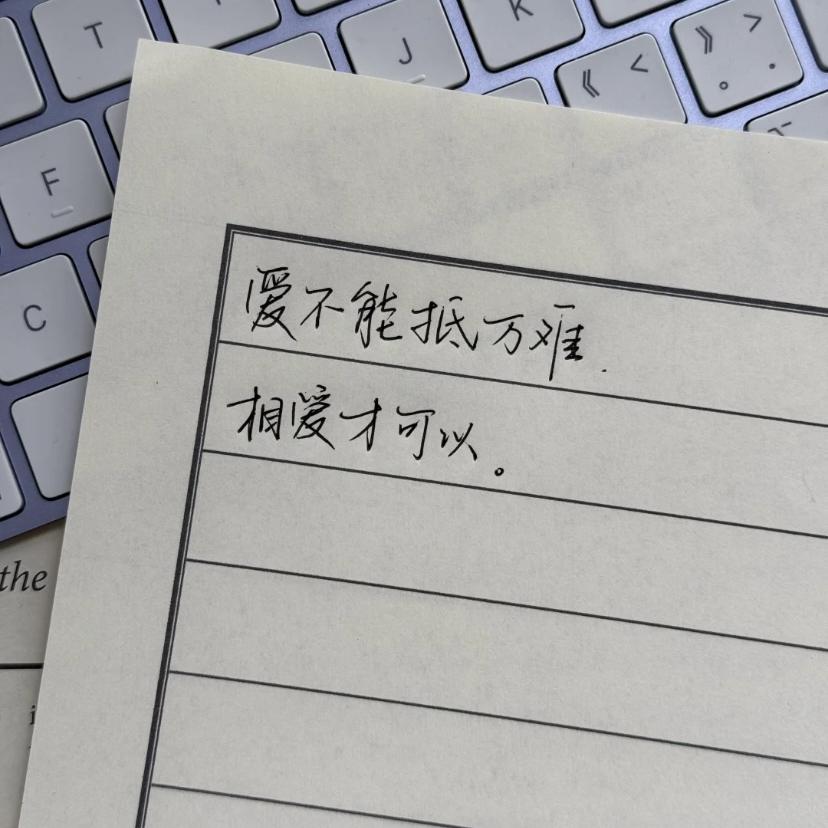 T
J
K
《 <
》 >
。 .
F
C
爱不能抵万难.
相爱才可以。
the
i